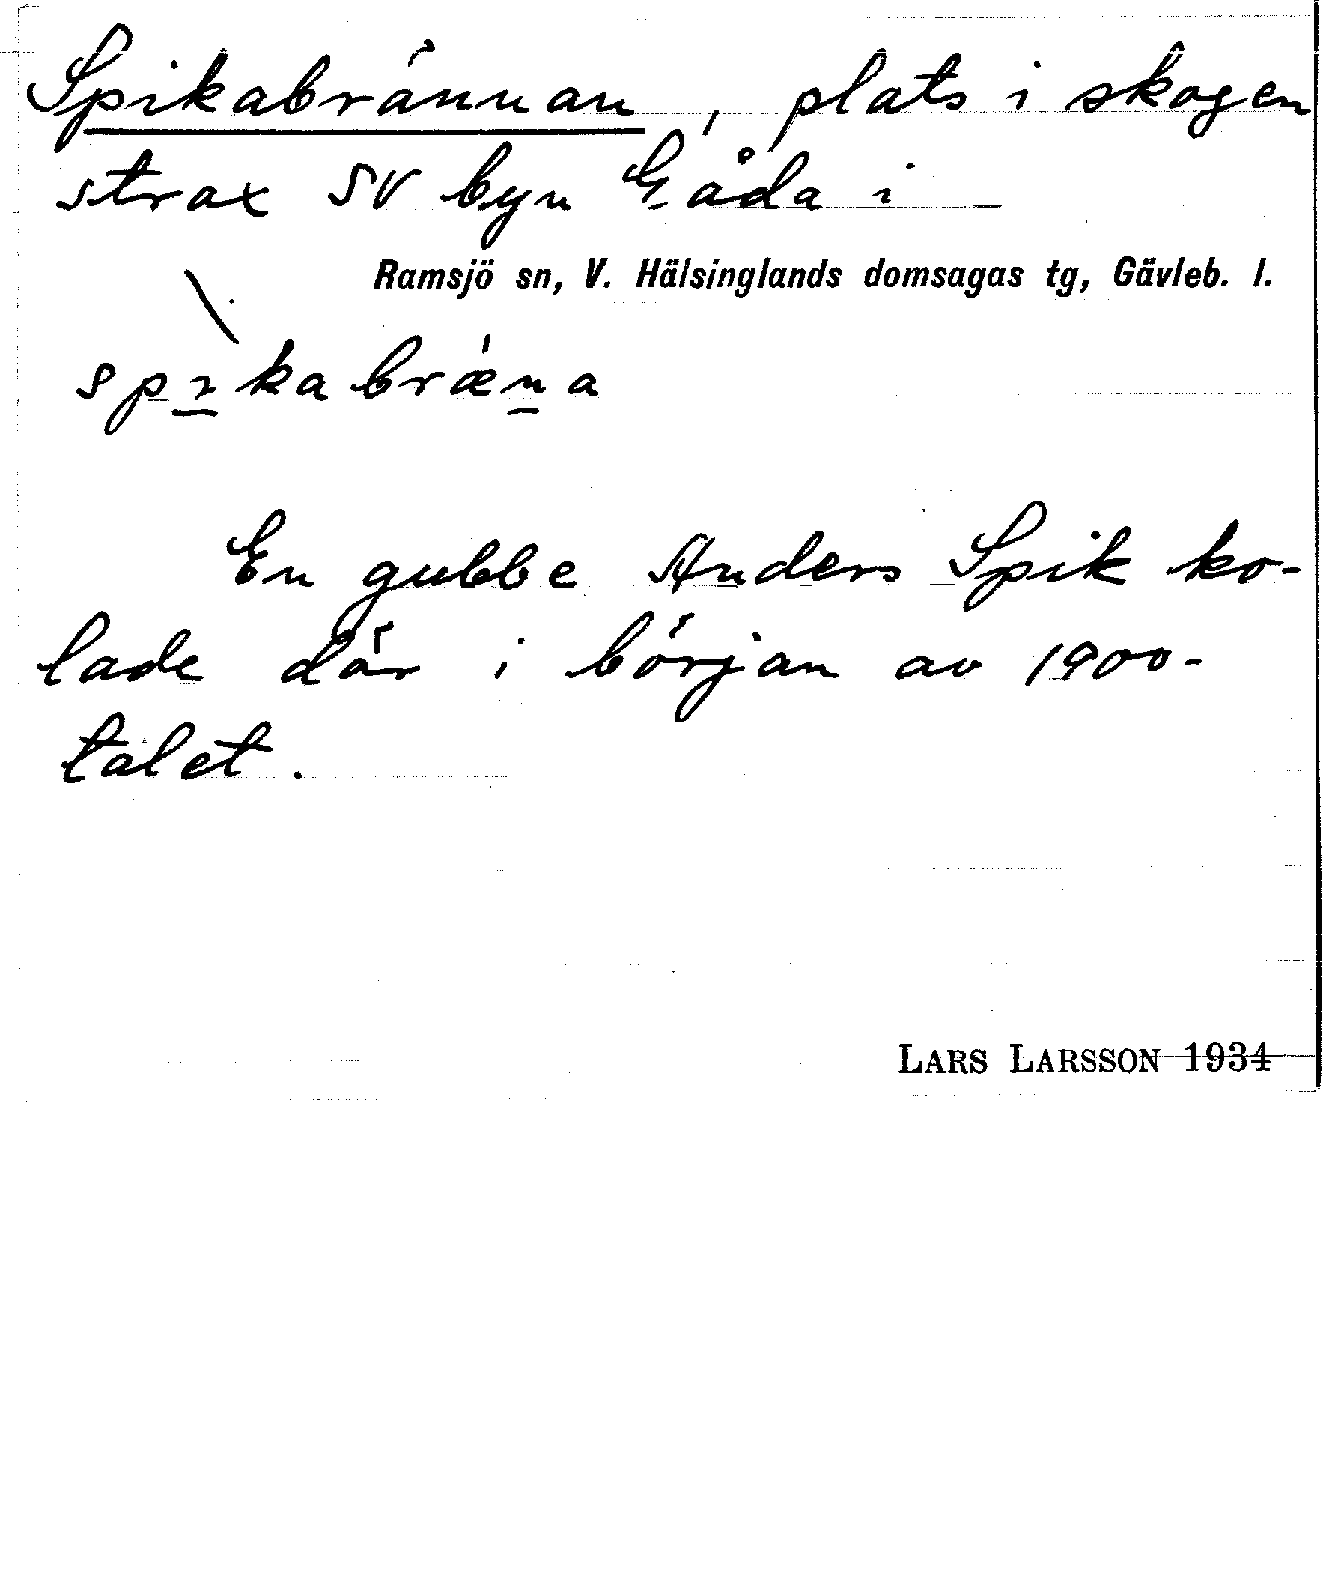 Spikabrännan, plats i skogen
strax SV byn Gåda i
Ramsjö sn, V. Hälsinglands domsagas tg, Gävleb. l.
spı̱̀kabrǽṉa
En gubbe Anders Spik ko-
lade där i början av 1900-
talet.
LARS LARSSON 1934